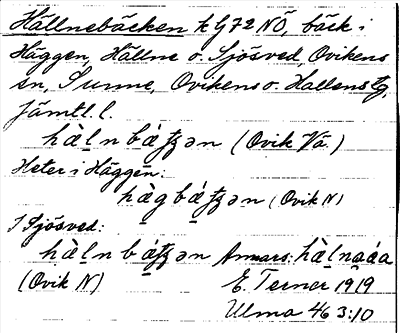 Hällnebäcken k G72 NÖ, bäck i
Häggen, Hällne o. Sjösved, Ovikens
sn, Sunne, Ovikens o. Hallens tg,
Jämtl. l.
hàlnbáʈʂən (Ovik Vä.)
Heter i Häggen:
hàgbáʈʂən (Ovik N)
I Sjösved:
hàlnbáʈʂən Annars: hàlnaáa
(Ovik N) E. Terner 1919
Ulma 46 3:10